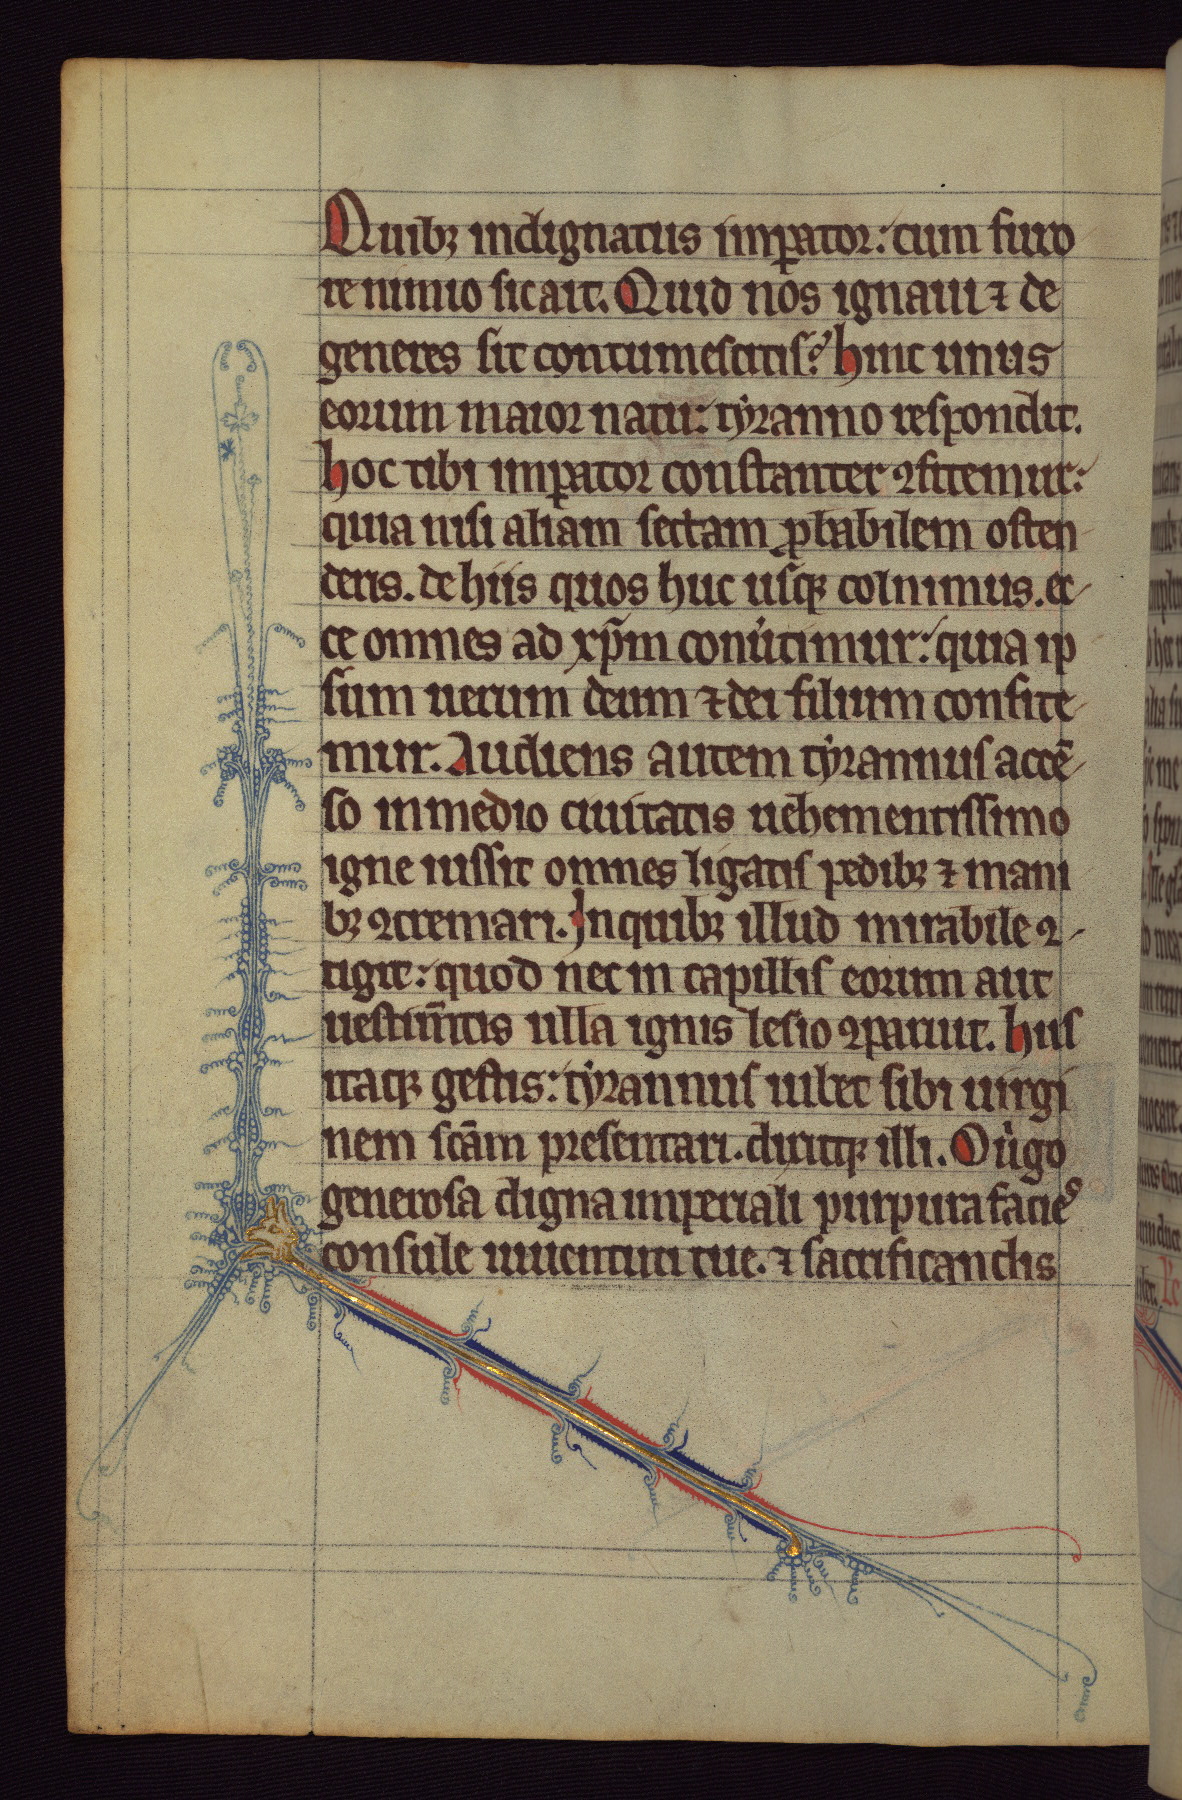 Quibꝫ indignatus impator: cum furo
re nimio sic ait. Quid nos ignaui ⁊ de
generes sic contumescitis? hinc unus
eorum maior natu: tyranno respondit.
hoc tibi imꝑator constanter ꝯfitemur:
quia nisi aliam sectam ꝓbabilem osten
deris. de hiis quos huc usqꝫ coluimus. ec
ce omnes ad xp̄m conu̓timur: quia ip
sum uerum deum ⁊ dei filium confite
mur. Audiens autem tyrannus accē
so in medio ciuitatis uehementissimo
igne iussit omnes ligatis pedibꝫ ⁊ mani
bꝫ ꝯcremari. In quibꝫ illud mirabile ꝯ
tigit: quod nec in capillis eorum aut
uestim̄tis ulla ignis lesio ꝯparuit. hiis
itaqꝫ gestis: tyrannus iubet sibi uirgi
nem sc̄am presentari. dixitqꝫ illi. O uͥgo
generosa digna imperiali purpura facie
consule iuuentuti tue. ⁊ sacrificandis